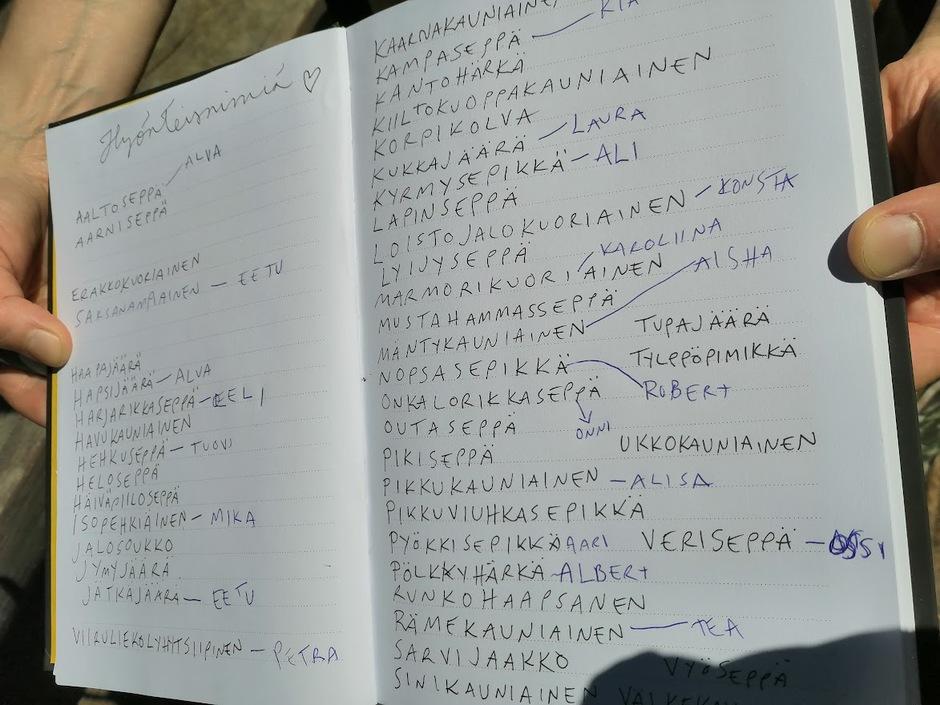 Hyönteisnimiä ♡
AALTOSEPPÄ ALVA
AARNISEPPÄ
ERAKKOKUORIAINEN
SARSANAMPIAINEN – EETU
HAAPAJÄÄRÄ
HAPSIJÄÄRÄ – ALVA
HARJARIKKASEPPÄ – EELI
HAVUKAUNIAINEN
HEHKUSEPPÄ – TUOVI
HELOSEPPÄ
HÄIVÄPIILOSEPPÄ
ISOPEHKIÄINEN – MIKA
JALOSOUKKO
JYMYJÄÄRÄ
JATKAJÄÄRÄ – EETU
VIIRULIEKOLYHTSIIPINEN – PETRA
KAARNAKAUNIAINEN
KAMPASEPPÄ – KIA
KANTOHÄRKÄ
KIILTOKUOPPAKAUNIAINEN
KORPIKOLVA
KUKKAJÄÄRÄ – LAURA
KYRMYSEPIKKÄ – ALI
LAPINSEPPÄ
LOISTOJALOKUORIAINEN – KONSTA
LYIJYSEPPÄ
MARMORIKUORIAINEN KAROLIINA
MUSTAHAMMASSEPPÄ
MÄNTYKAUNIAINEN AISHA
TUPAJÄÄRÄ
NOPSASEPIKKÄ ROBERT
TYLPPÖPIMIKKÄ
ONKALORIKKASEPPÄ ONNI
OUTASEPPÄ
PIKISEPPÄ UKKOKAUNIAINEN
PIKKUKAUNIAINEN – ALISA
PIKKUVIUHKASEPIKKÄ
PYÖKKISEPIKKÄ AARI VERISEPPÄ – OSSI
PÖLKKYHÄRKÄ – ALBERT
RUNKOHAAPSANEN
RÄMEKAUNIAINEN – TEA
SARVIJAAKKO VYÖSEPPÄ
SINIKAUNIAINEN